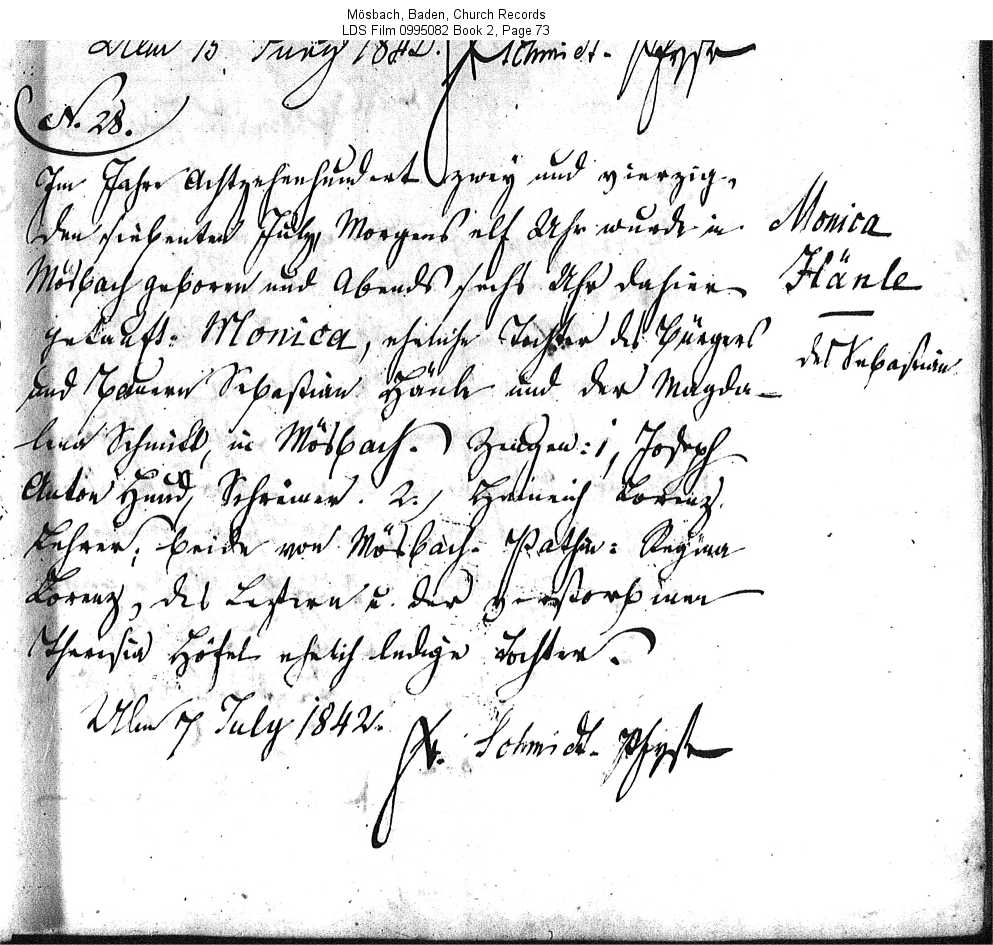 Mösbach, Baden, Church Records
LDS Film 0995082 Book 2, Page 73
Ulm 15 Juny 1842. Schmidt
N. 28.
Im Jahre Achtzehenhundert zwey und vierzig,
den siebenten July Morgens elf Uhr wurde in
Mösbach geboren und Abends sechs Uhr dahier
getauft: Monica, eheliche Tochter des Bürgers
und Bauern Sebastian Hänle und der Magda-
lena Schmitt, in Mösbach. Zeugen: 1, Joseph
Anton Hund, Schreiner. 2., Heinrich Lorenz,
Lehrer; beide von Mösbach. Pathin: Regina
Lorenz, des Leztern u. der verstorbenen
Theresia Höfel ehelich ledige Tochter.
Ulm 7 July 1842.
Schmidt
Monica
Hänle
des Sebastian